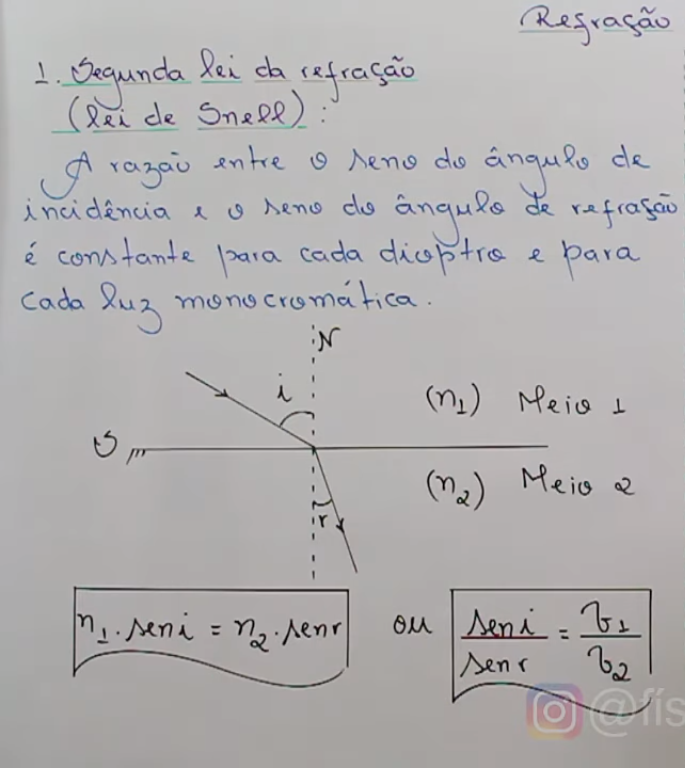 Refração
1. Segunda lei da refração
(lei de Snell):
A razão entre o seno do ângulo de
incidência e o seno do ângulo de refração
é constante para cada dioptro e para
cada luz monocromática.
N
i
(n₁) Meio 1
S
(n₂) Meio 2
r
n₁ . sen i = n₂ . sen r ou sen i / sen r = v₁ / v₂
@fís